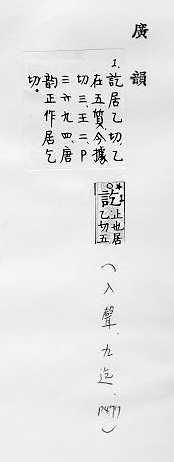 廣韻
1.訖居乙切,乙
在五質,今據
切三、王二、P
三六九四、唐
韻正作居乞
切。
訖止也居
乙切五
(入聲.九迄.P477)